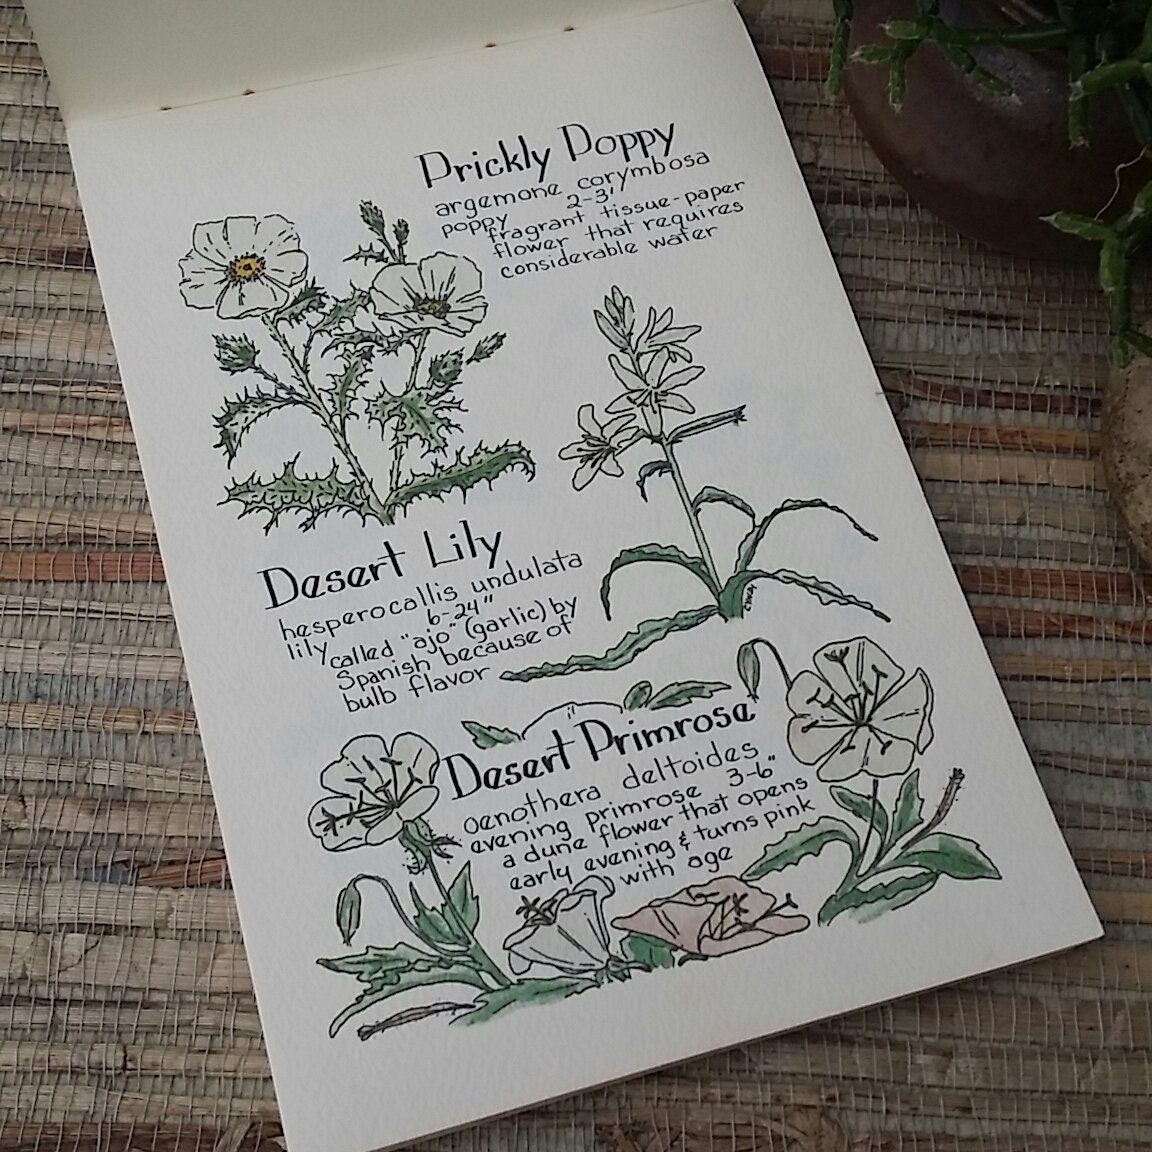 Prickly Poppy
argemone corymbosa
poppy 2-3'
fragrant tissue-paper
flower that requires
considerable water
Desert Lily
hesperocallis undulata
lily 6-24"
called "ajo" (garlic) by
Spanish because of
bulb flavor
Desert Primrose
oenothera deltoides
evening primrose 3-6"
a dune flower that opens
early evening & turns pink
with age